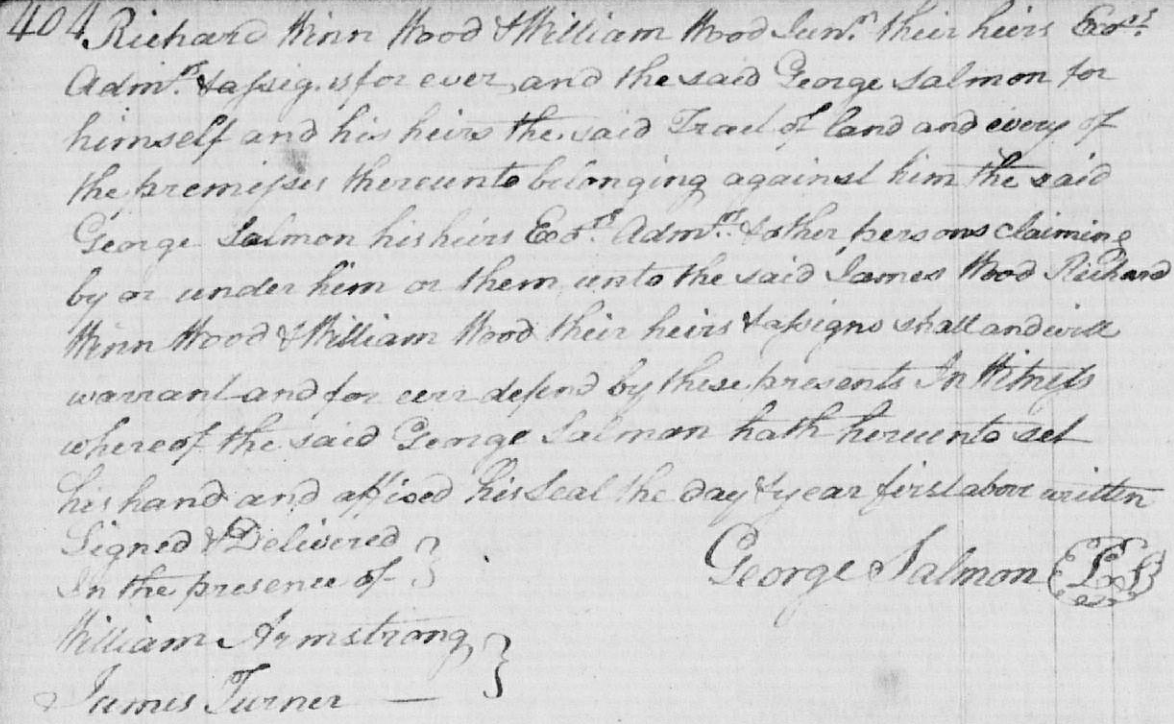 404
Richard Winn Wood & William Wood Junr. their heirs Exors.
Admrs. & assigns for ever, and the said George Salmon for
himself and his heirs the said Tract of land and every of
the premises thereunto belonging against him the said
George Salmon his heirs Exors. Admrs. & other persons claiming
by or under him or them unto the said James Wood Richard
Winn Wood & William Wood their heirs & assigns shall and will
warrant and for ever defend by these presents In Witness
whereof the said George Salmon hath hereunto set
his hand and affixed his Seal the day & year first above written
Signed & Delivered
In the presence of
George Salmon (L S)
William Armstrong
James Turner